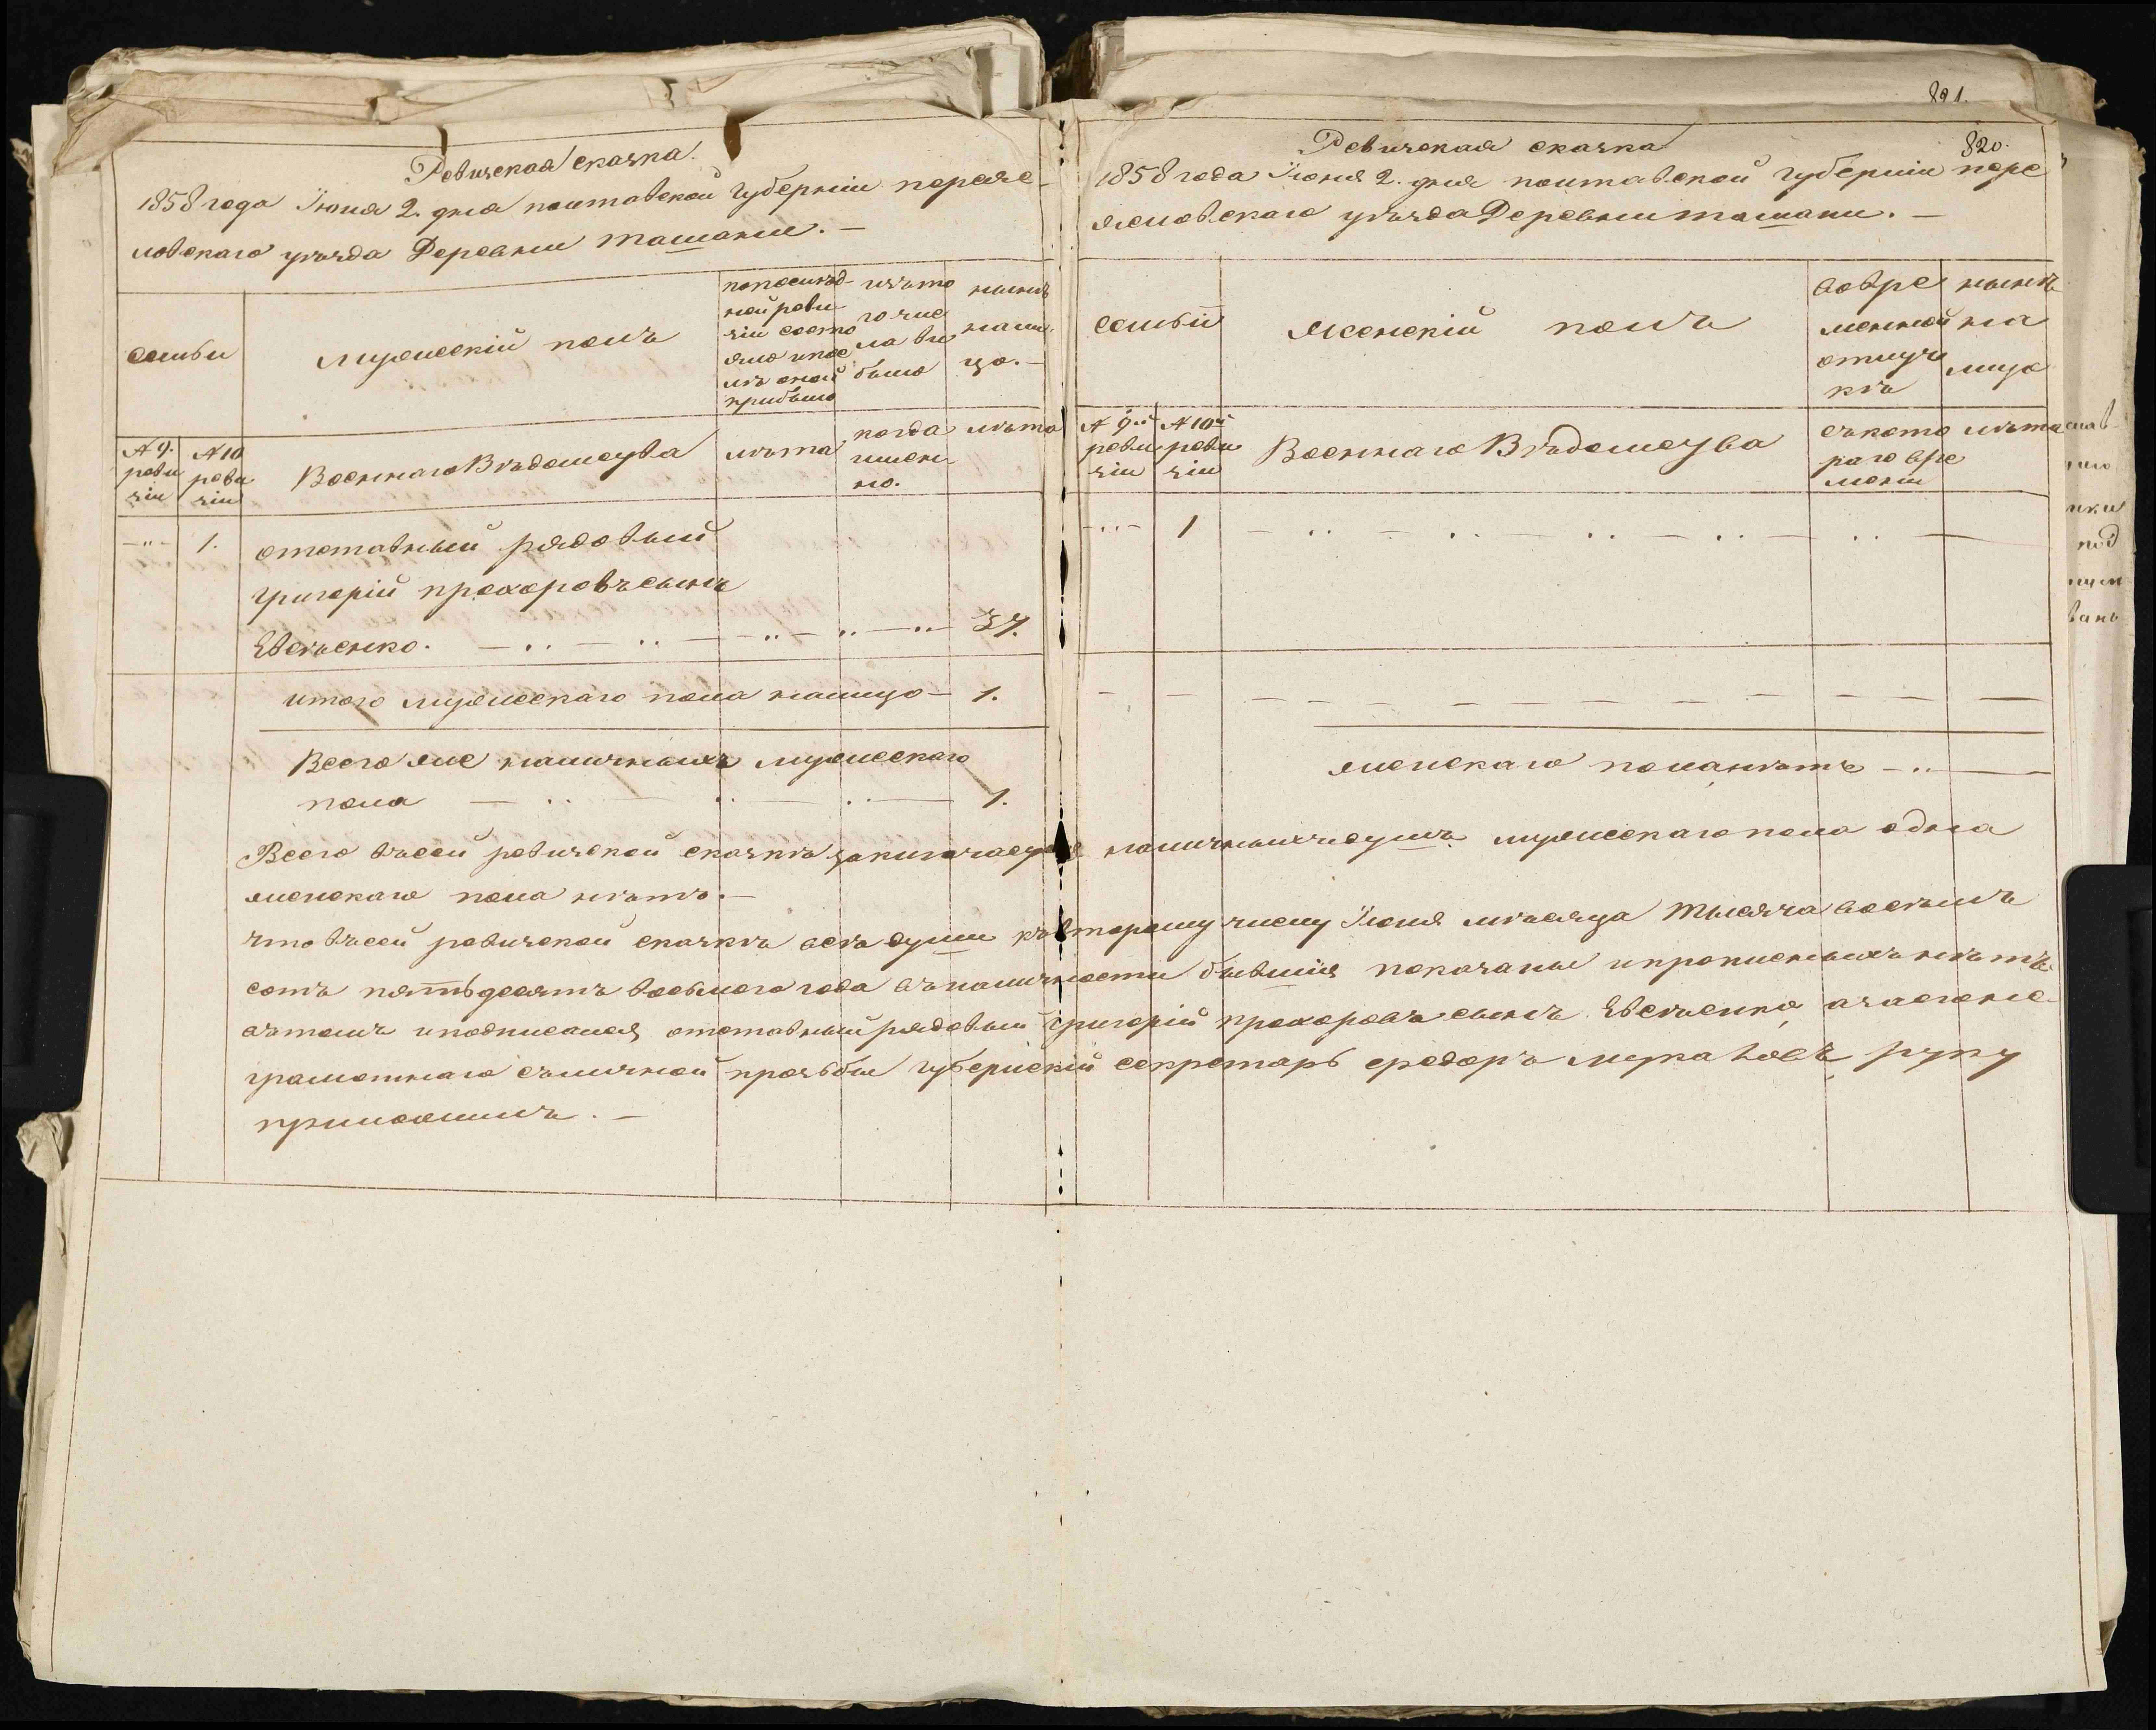 Ревизская сказка.
1858 года Іюня 2. дня полтавской губерніи переяс-
ловскаго уѣзда Деревни ташани. —
семьи
мужескій полъ
попослѣд-
ней реви-
зіи состо
яло и пос
лѣ оной
прибыло
изъ то
го чис
ла вы
было
нынѣ
нали
цо. —
№ 9.
реви
зіи
№ 10
реви
зіи
Военнаго Вѣдомства
лѣта
когда
имен-
но.
лѣта
1. отставный рядовый
григорій прохоровъ сынъ
Евсѣенко. 37.
итого мужескаго пола налицо — 1.
Всего же наличныхъ мужескаго
пола 1.
821.
Ревизская сказка
820.
1858 года Іюня 2. дня полтавской губерніи пере
ясловскаго уѣзда Деревни ташани. —
семьи
женскій полъ
вовре
менной
отлуч
кѣ
нынѣ
на
лицо
№ 9й
реви
зіи
№ 10й
реви
зіи
Военнаго Вѣдомства
съ кото
раго вре
мени
лѣта
1
женскаго пола нѣтъ
Всего въ сей ревизской сказкѣ заключается наличныхъ душъ мужескаго пола одна
женскаго пола нѣтъ. —
что въ сей ревизской сказкѣ всѣ души къ второму числу Іюня мѣсяца тысяча восѣмъ
сотъ пятьдесятъ восьмого года въ наличности бывшія показаны и прописныхъ нѣтъ
въ томъ и подписался отставный рядовый григорій прохоровъ сынъ Евсѣенко, а за его не
грамотнаго съ личной прозьбы губернскій секретарь средоръ руку
приложилъ. —